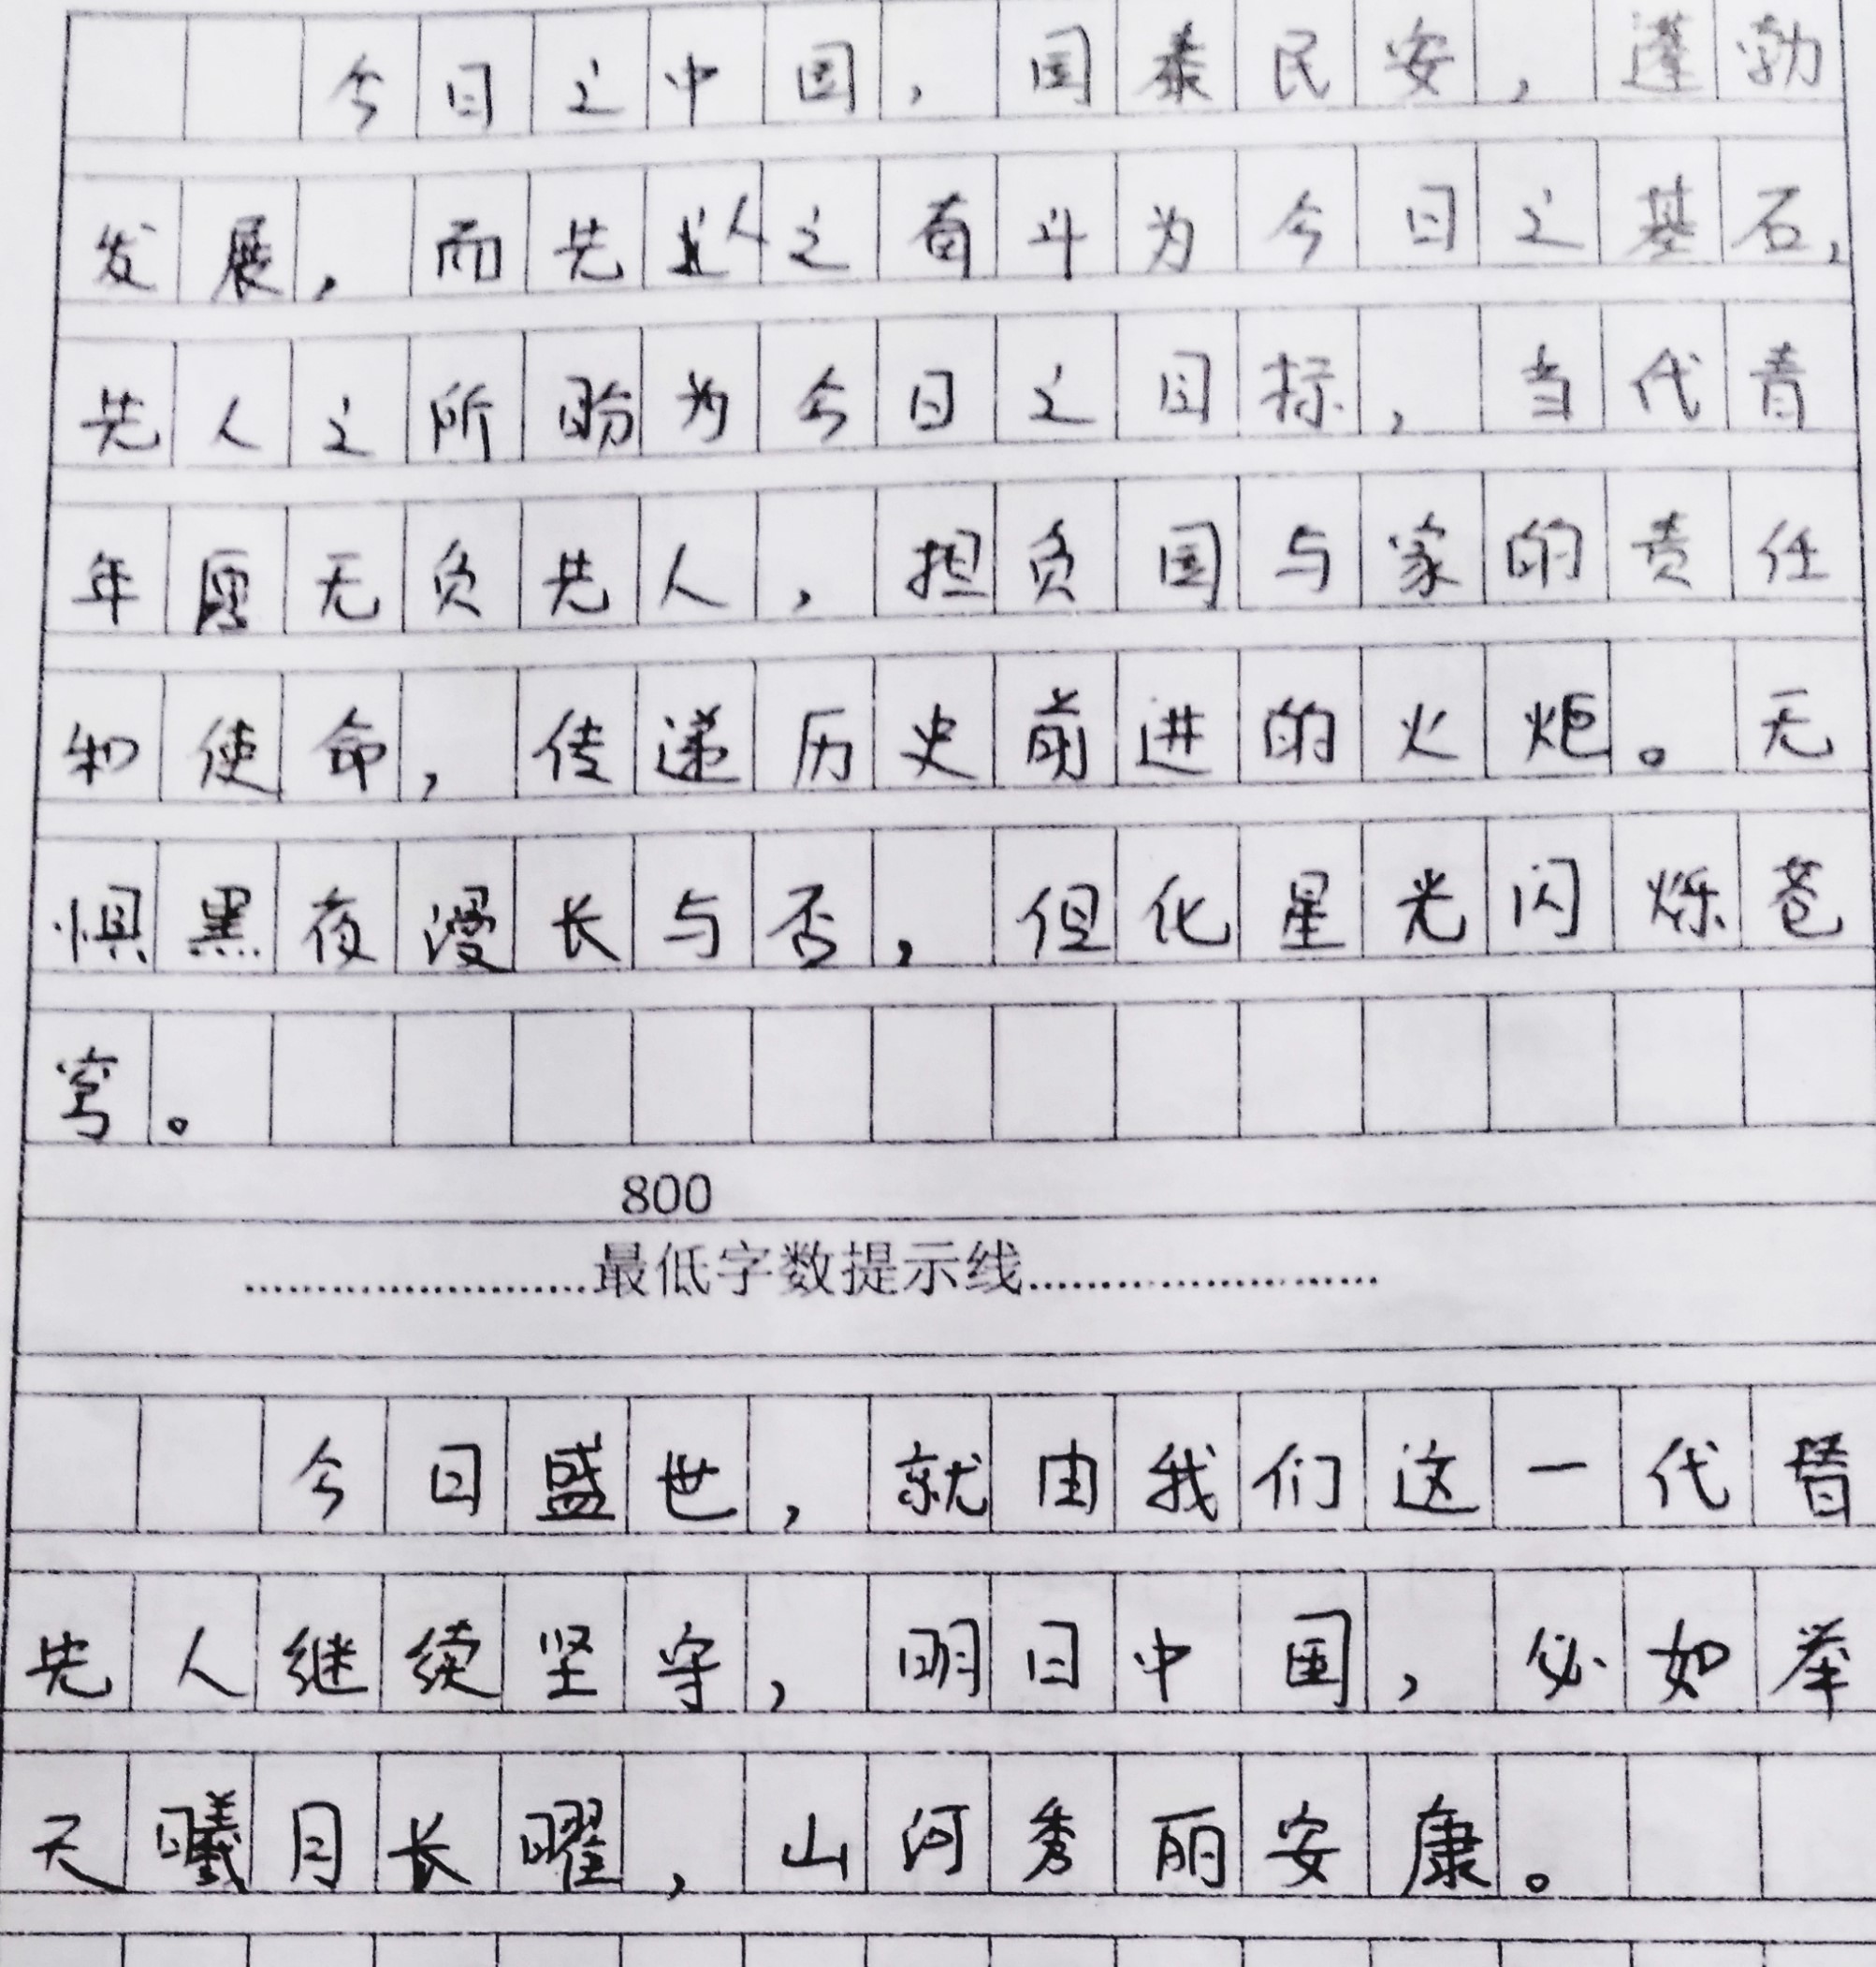 今日之中国，国泰民安，蓬勃
发展，而先人之奋斗为今日之基石，
先人之所盼为今日之目标，当代青
年愿无负先人，担负国与家的责任
和使命，传递历史前进的火炬。无
惧黑夜漫长与否，但化星光闪烁苍
穹。
800
最低字数提示线
今日盛世，就由我们这一代替
先人继续坚守，明日中国，必如举
天曦月长曜，山河秀丽安康。